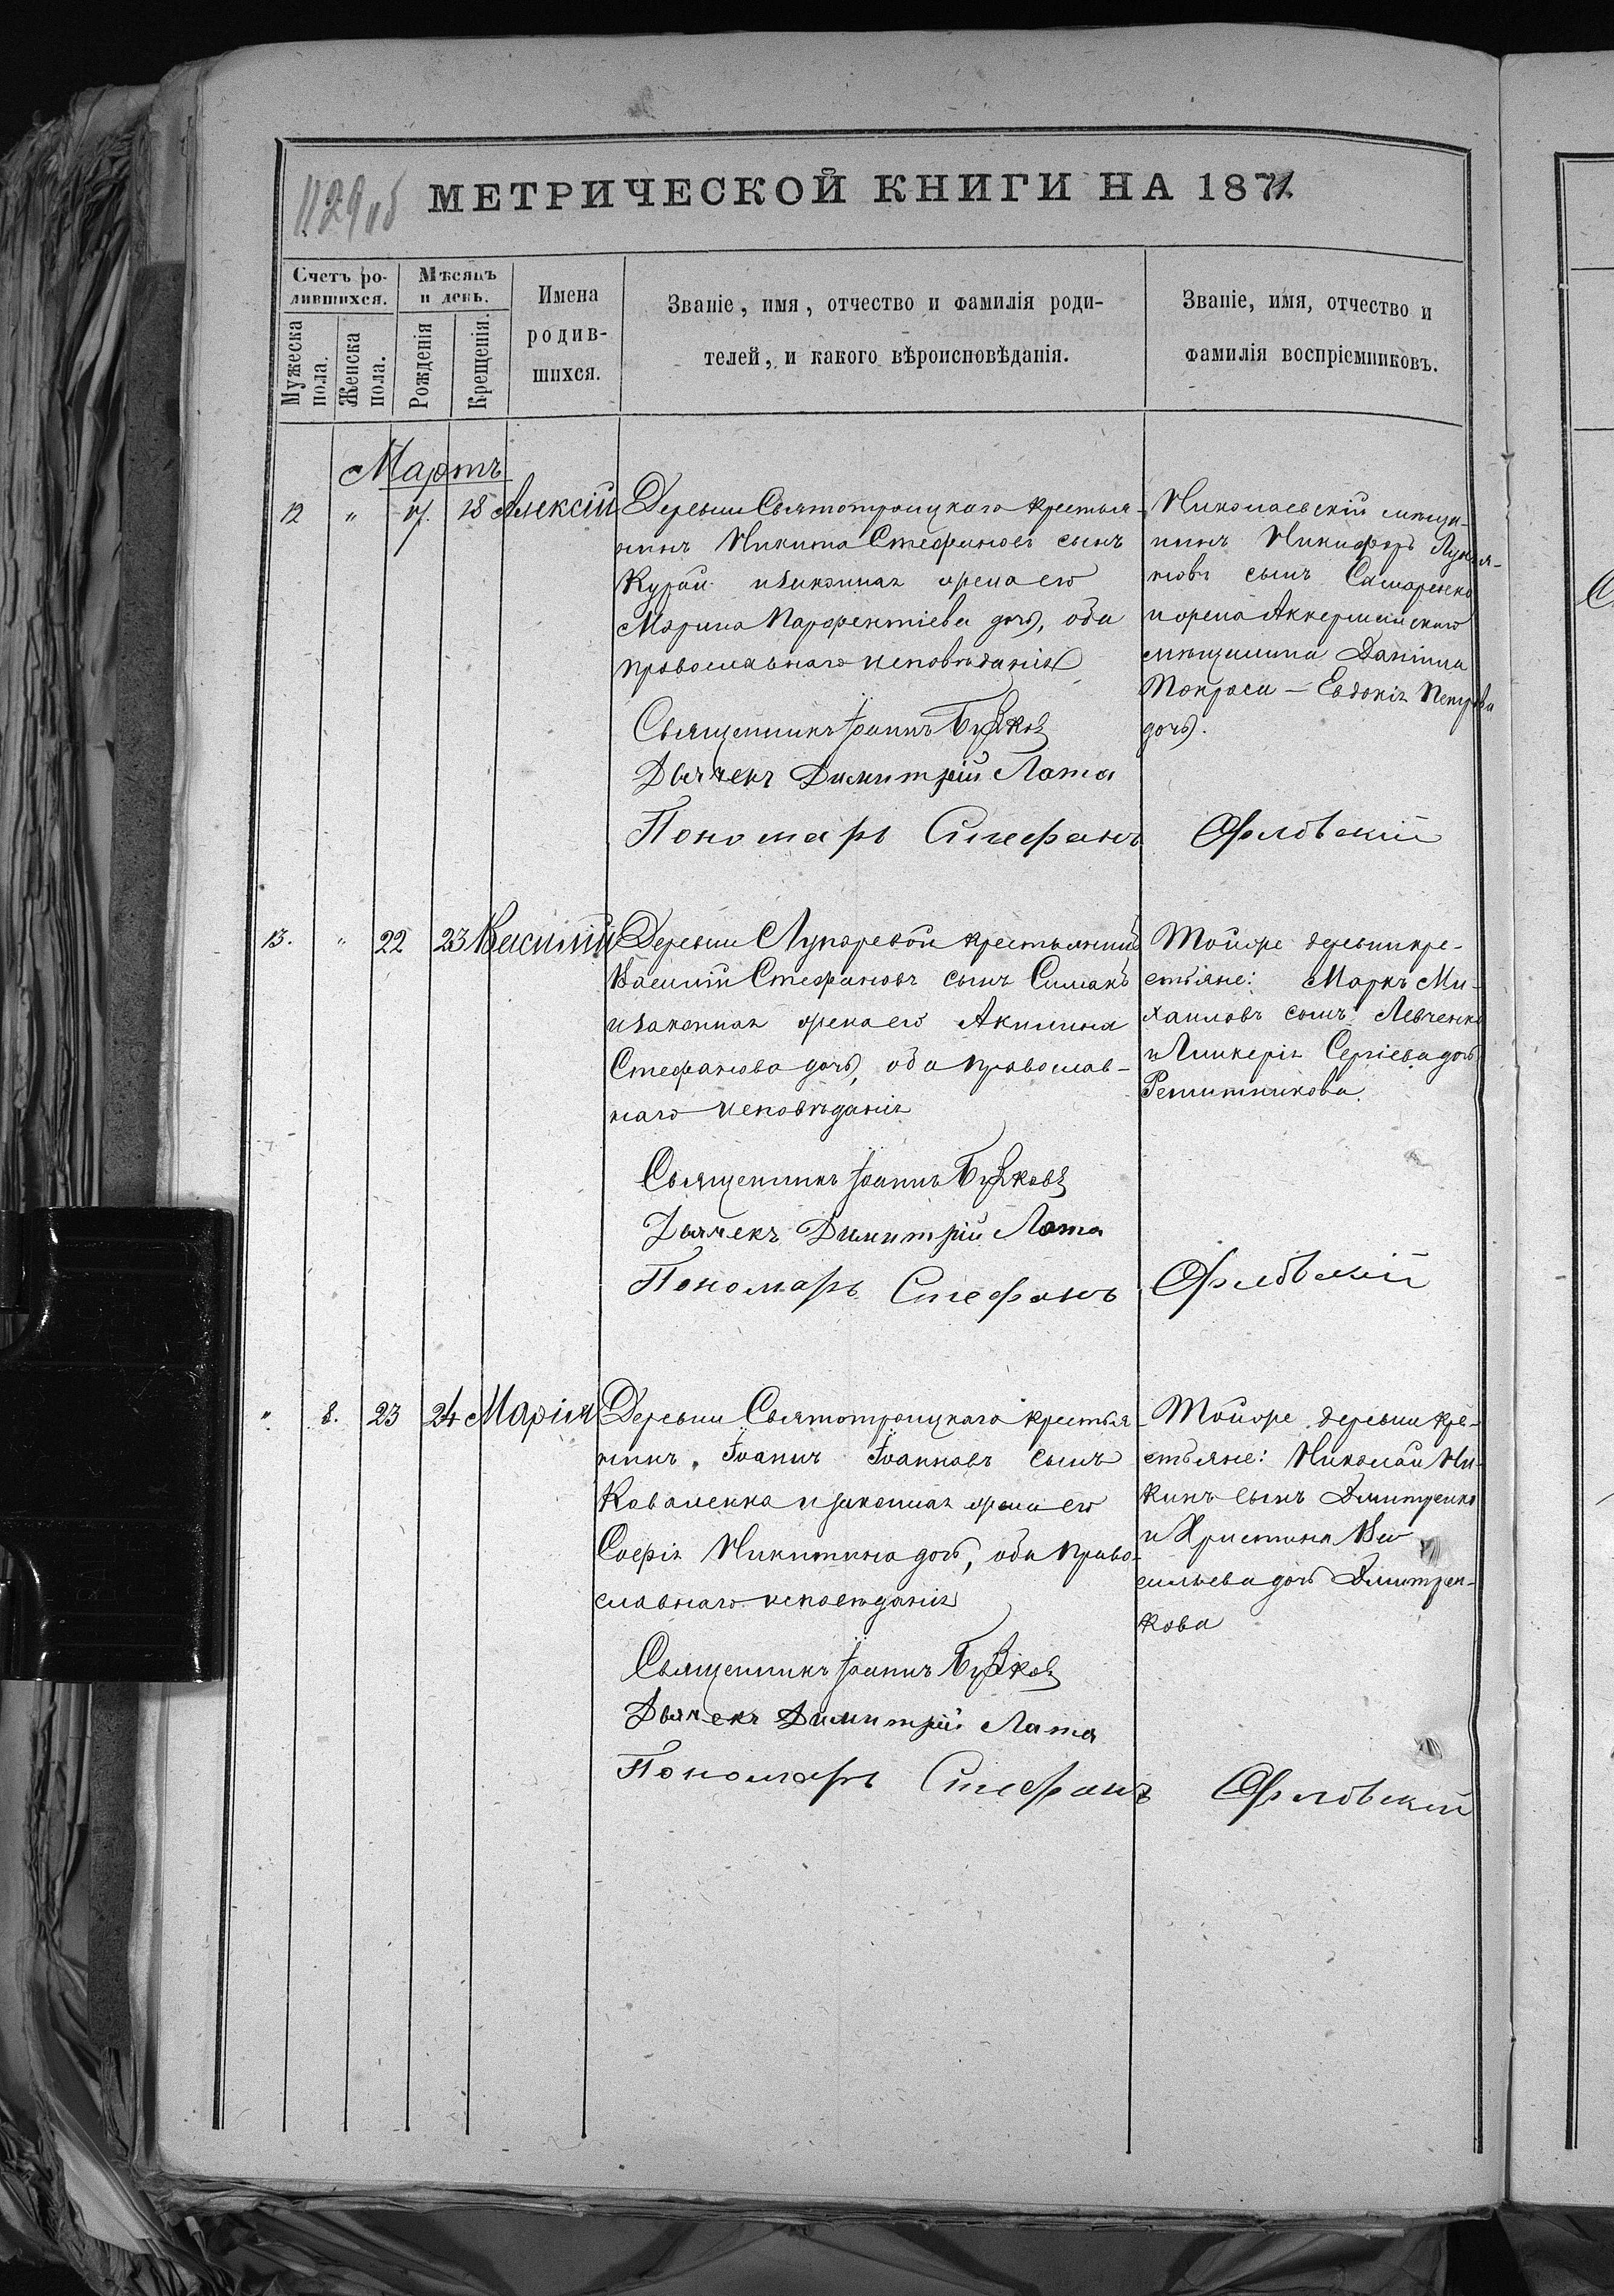 1129 об
МЕТРИЧЕСКОЙ КНИГИ НА 1871.
Счетъ ро-
дившихся.
Мѣсяцъ
и день.
Мужеска
пола.
Женска
пола.
Рожденія
Крещенія.
Имена
родив-
шихся.
Званіе, имя, отчество и фамилія роди-
телей, и какого вѣроисповѣданія.
Званіе, имя, отчество и
фамилія воспріемниковъ.
Мартъ
12 " 17. 18 Алексій
Деревни Святотроицкаго крестья-
нинъ Никита Стефановъ сынъ
Курай и законная жена его
Марина Парфентіева дочь, оба
православнаго исповѣданія
Священникъ Іоаннъ
Дьячекъ Димитрій Лата
Пономарь Стефанъ Орловскій
Николаевскій мѣща-
нинъ Никифоръ Лукья-
новъ сынъ Самаренко
и жена Аккерманскаго
мѣщанина Даніила
Покраса — Евдокія Петрова
дочь.
13. " 22 23 Василій
Деревни Лупаревой крестьянинъ
Василій Стефановъ сынъ Симакъ
и законная жена его Акилина
Стефанова дочь, оба православ-
наго исповѣданія
Священникъ Іоаннъ
Дьячекъ Димитрій Лата
Пономарь Стефанъ Орловскій
Тойже деревни кре-
стьяне: Маркъ Ми-
хаиловъ сынъ Левченко
и Гликерія Сергіева дочь
Решитникова.
" 8. 23 24 Марія
Деревни Святотроицкаго крестья-
нинъ Іоаннъ Іоанновъ сынъ
Коваленко и законная жена его
Софія Никитина дочь, оба право-
славнаго исповѣданія
Священникъ Іоаннъ
Дьячекъ Димитрій Лата
Пономарь Стефанъ Орловскій
Тойже деревни кре-
стьяне: Николай Ни-
кинъ сынъ Дмитренко
и Христина Ва
сильева дочь Дмитрен-
кова